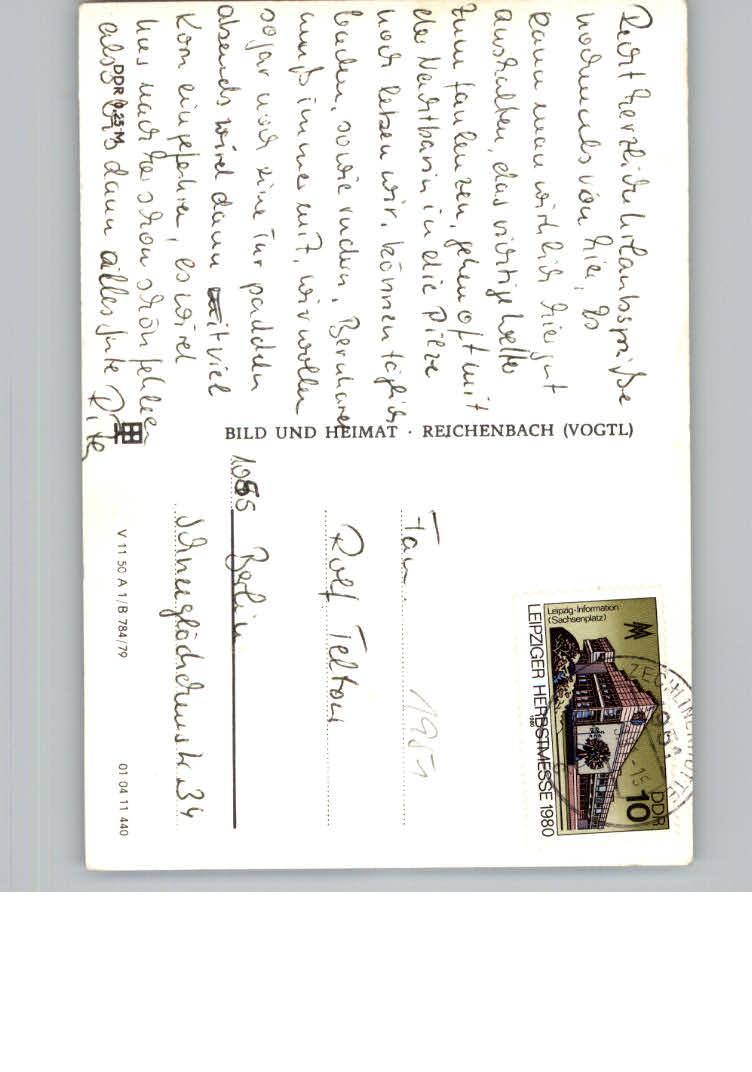 Recht herzliche Urlaubsgrüße
nochmals von hier, Es
kann man wirklich hier gut
aushalten, das richtige Wetter
zum faulenzen, gehen oft mit
der Nachbarin in die Pilze
noch letzen wir, können täglich
baden, sowie rudern, Bernhard
muß immer mit, wir wollen
sogar noch eine Tur paddeln
abends wird dann mit viel
Korn eingefahren, es wird
uns nachher schon schön fehlen
also bis dann alles gute
DDR 0,25 M
BILD UND HEIMAT · REICHENBACH (VOGTL)
Fam.
1951
Rolf Teltow
Berlin
Schneeglöckchenstr. 34
V 11 50 A 1/B 784/79
01 04 11 440
Leipzig-Information
(Sachsenplatz)
LEIPZIGER HERBSTMESSE 1980
1980
DDR
10
ZECHLINERHÜTTE
1951